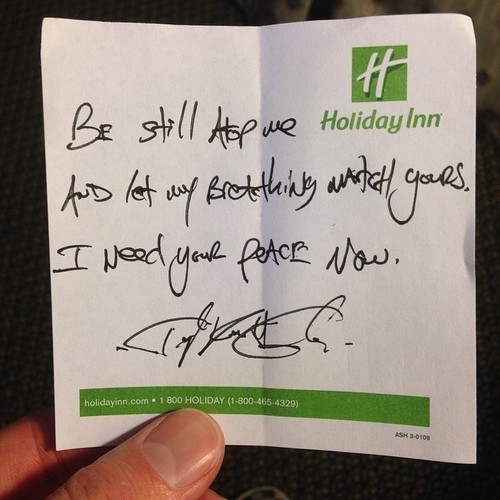 H
Holiday Inn
BE still Atop me
AND let my BREAthINg MATCH yours.
I Need your PEACE Now.
holidayinn.com • 1 800 HOLIDAY (1-800-465-4329)
ASH 3-0109